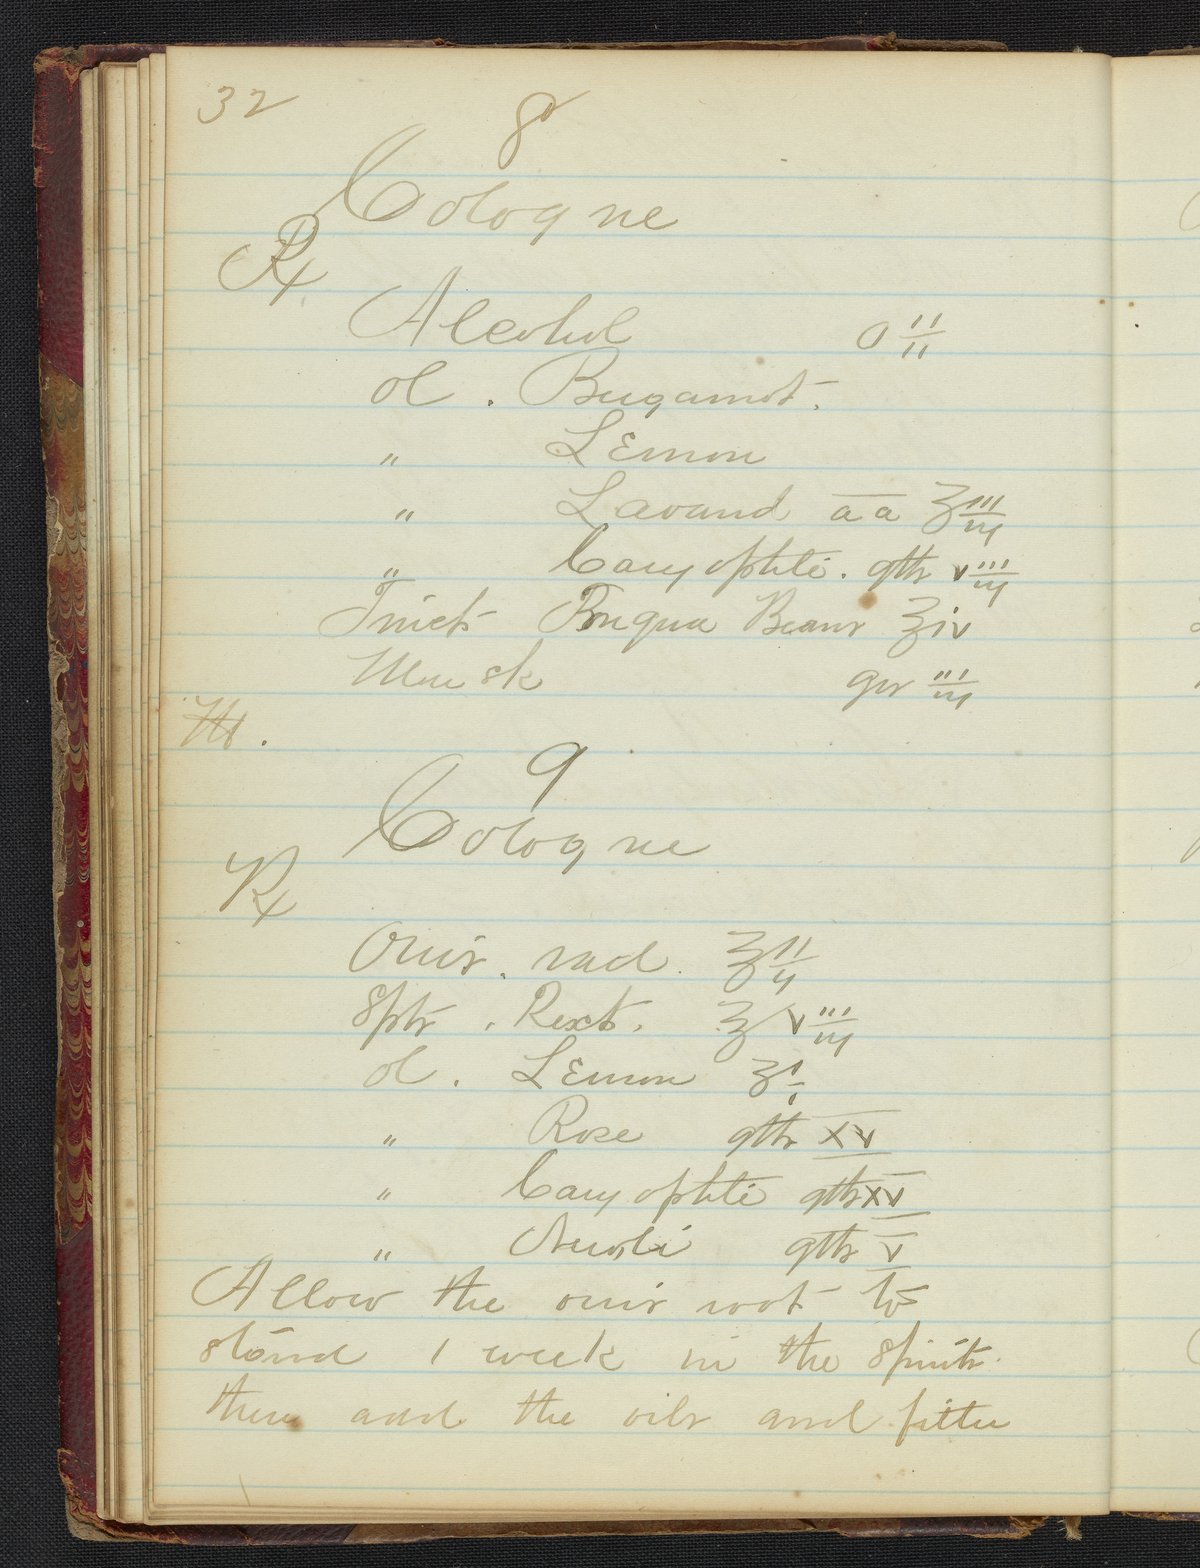 32
8
Cologne
℞
Alcohol O ii
ol. Burgamot.
" Lemon
" Lavand āā ʒiii
" Caryophili. gtts viii
Tinct Tonqua Beans ʒiv
Musk grs iii
M.
9
Cologne
℞
Orris. rad. ℥ii
Spts. Rect. ℥viii
ol. Lemon ʒi
" Rose gtts xv
" Caryophili gtts xv
" Neroli gtts v
Allow the orris root to
stand 1 week in the spirits
then add the oils and filter